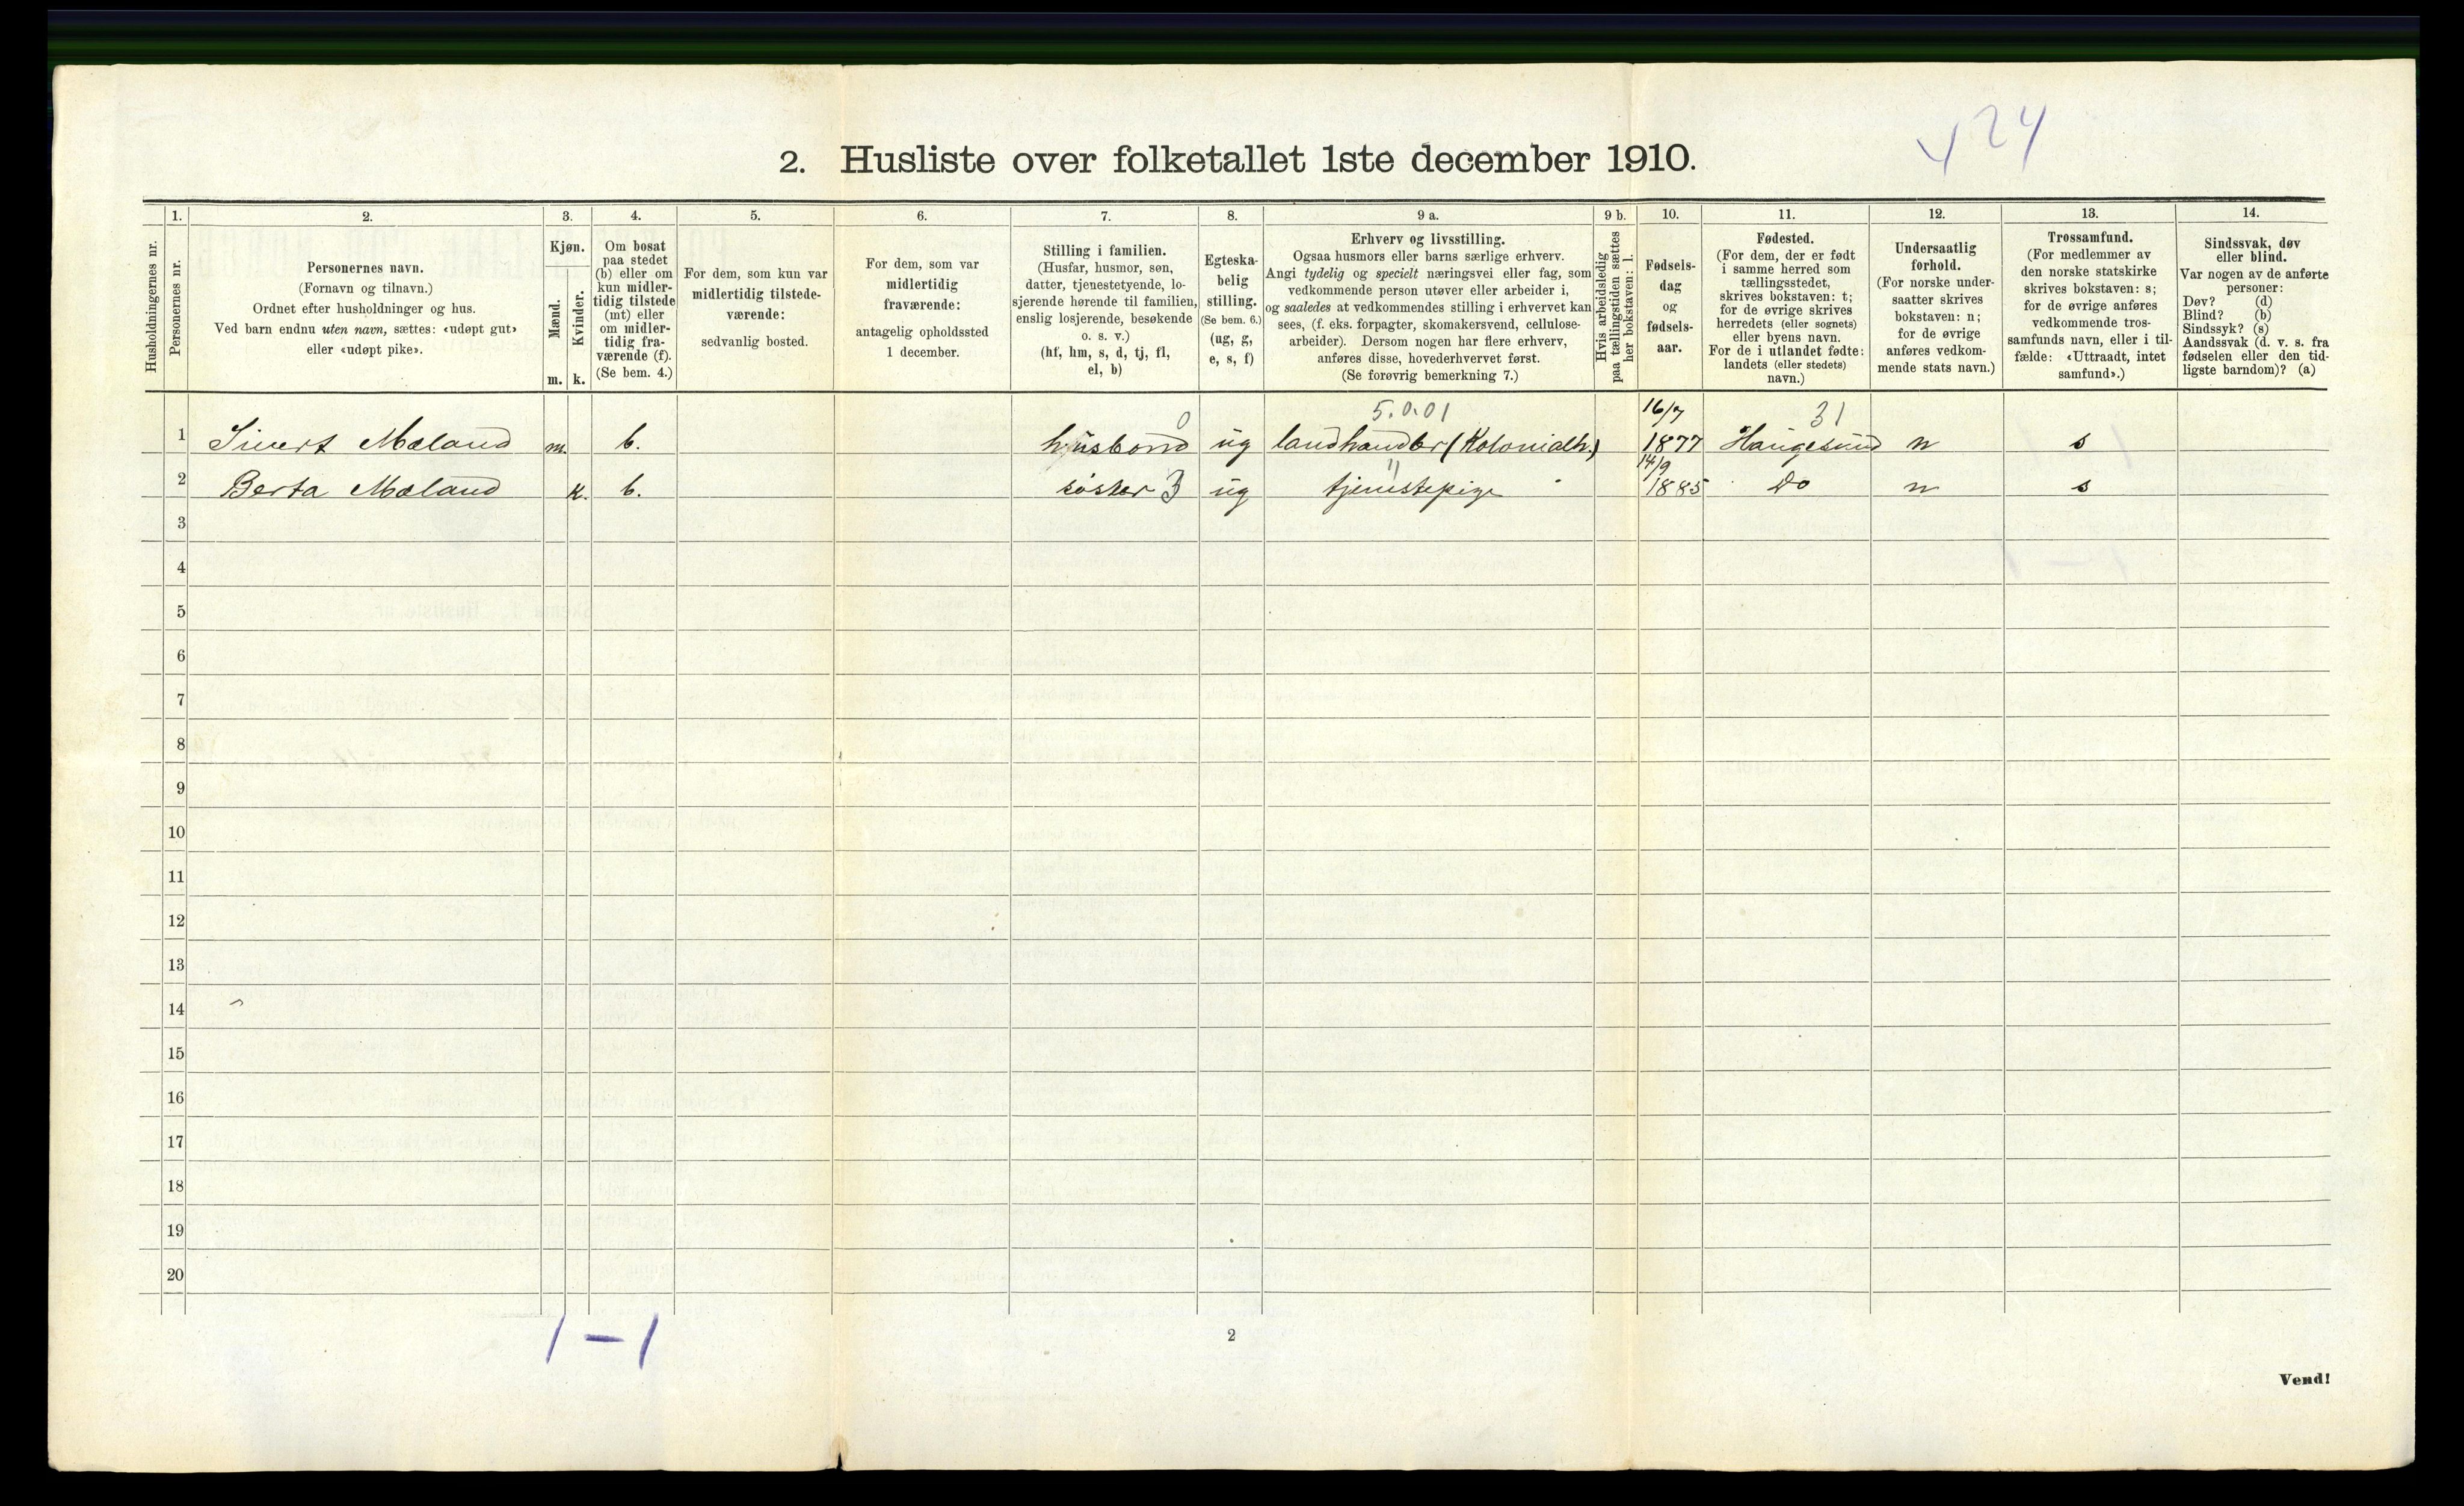 424
2. Husliste over folketallet 1ste december 1910.
Husholdningernes nr.
1.
Personernes nr.
2.
Personernes navn.
(Fornavn og tilnavn.)
Ordnet efter husholdninger og hus.
Ved barn endnu uten navn, sættes: «udøpt gut»
eller «udøpt pike».
3.
Kjøn.
Mænd.
Kvinder.
m. k.
4.
Om bosat
paa stedet
(b) eller om
kun midler-
tidig tilstede
(mt) eller
om midler-
tidig fra-
værende (f).
(Se bem. 4.)
5.
For dem, som kun var
midlertidig tilstede-
værende:
sedvanlig bosted.
6.
For dem, som var
midlertidig
fraværende:
antagelig opholdssted
1 december.
7.
Stilling i familien.
(Husfar, husmor, søn,
datter, tjenestetyende, lo-
sjerende hørende til familien,
enslig losjerende, besøkende
o. s. v.)
(hf, hm, s, d, tj, fl,
el, b)
8.
Egteska-
belig
stilling.
(Se bem. 6.)
(ug, g,
e, s, f)
9 a.
Erhverv og livsstilling.
Ogsaa husmors eller barns særlige erhverv.
Angi tydelig og specielt næringsvei eller fag, som
vedkommende person utøver eller arbeider i,
og saaledes at vedkommendes stilling i erhvervet kan
sees, (f. eks. forpagter, skomakersvend, cellulose-
arbeider). Dersom nogen har flere erhverv,
anføres disse, hovederhvervet først.
(Se forøvrig bemerkning 7.)
9 b.
Hvis arbeidsledig
paa tællingstiden sættes
her bokstaven: l.
10.
Fødsels-
dag
og
fødsels-
aar.
11.
Fødested.
(For dem, der er født
i samme herred som
tællingsstedet,
skrives bokstaven: t;
for de øvrige skrives
herredets (eller sognets)
eller byens navn.
For de i utlandet fødte:
landets (eller stedets)
navn.)
12.
Undersaatlig
forhold.
(For norske under-
saatter skrives
bokstaven: n;
for de øvrige
anføres vedkom-
mende stats navn.)
13.
Trossamfund.
(For medlemmer av
den norske statskirke
skrives bokstaven: s;
for de øvrige anføres
vedkommende tros-
samfunds navn, eller i til-
fælde: «Uttraadt, intet
samfund».)
14.
Sindssvak, døv
eller blind.
Var nogen av de anførte
personer:
Døv? (d)
Blind? (b)
Sindssyk? (s)
Aandssvak (d. v. s. fra
fødselen eller den tid-
ligste barndom)? (a)
0 5.0.01 16/7 31
1 Sivert Mæland m. b. husbond ug landhandler (Kolonialh.) 1877 Haugesund n s
14/9
2 Berta Mæland k. b. søster 3 ug tjenestepige 1885 Do n s
3
4
5
6
7
8
9
10
11
12
13
14
15
16
17
18
19
20
1 – 1
2
Vend!